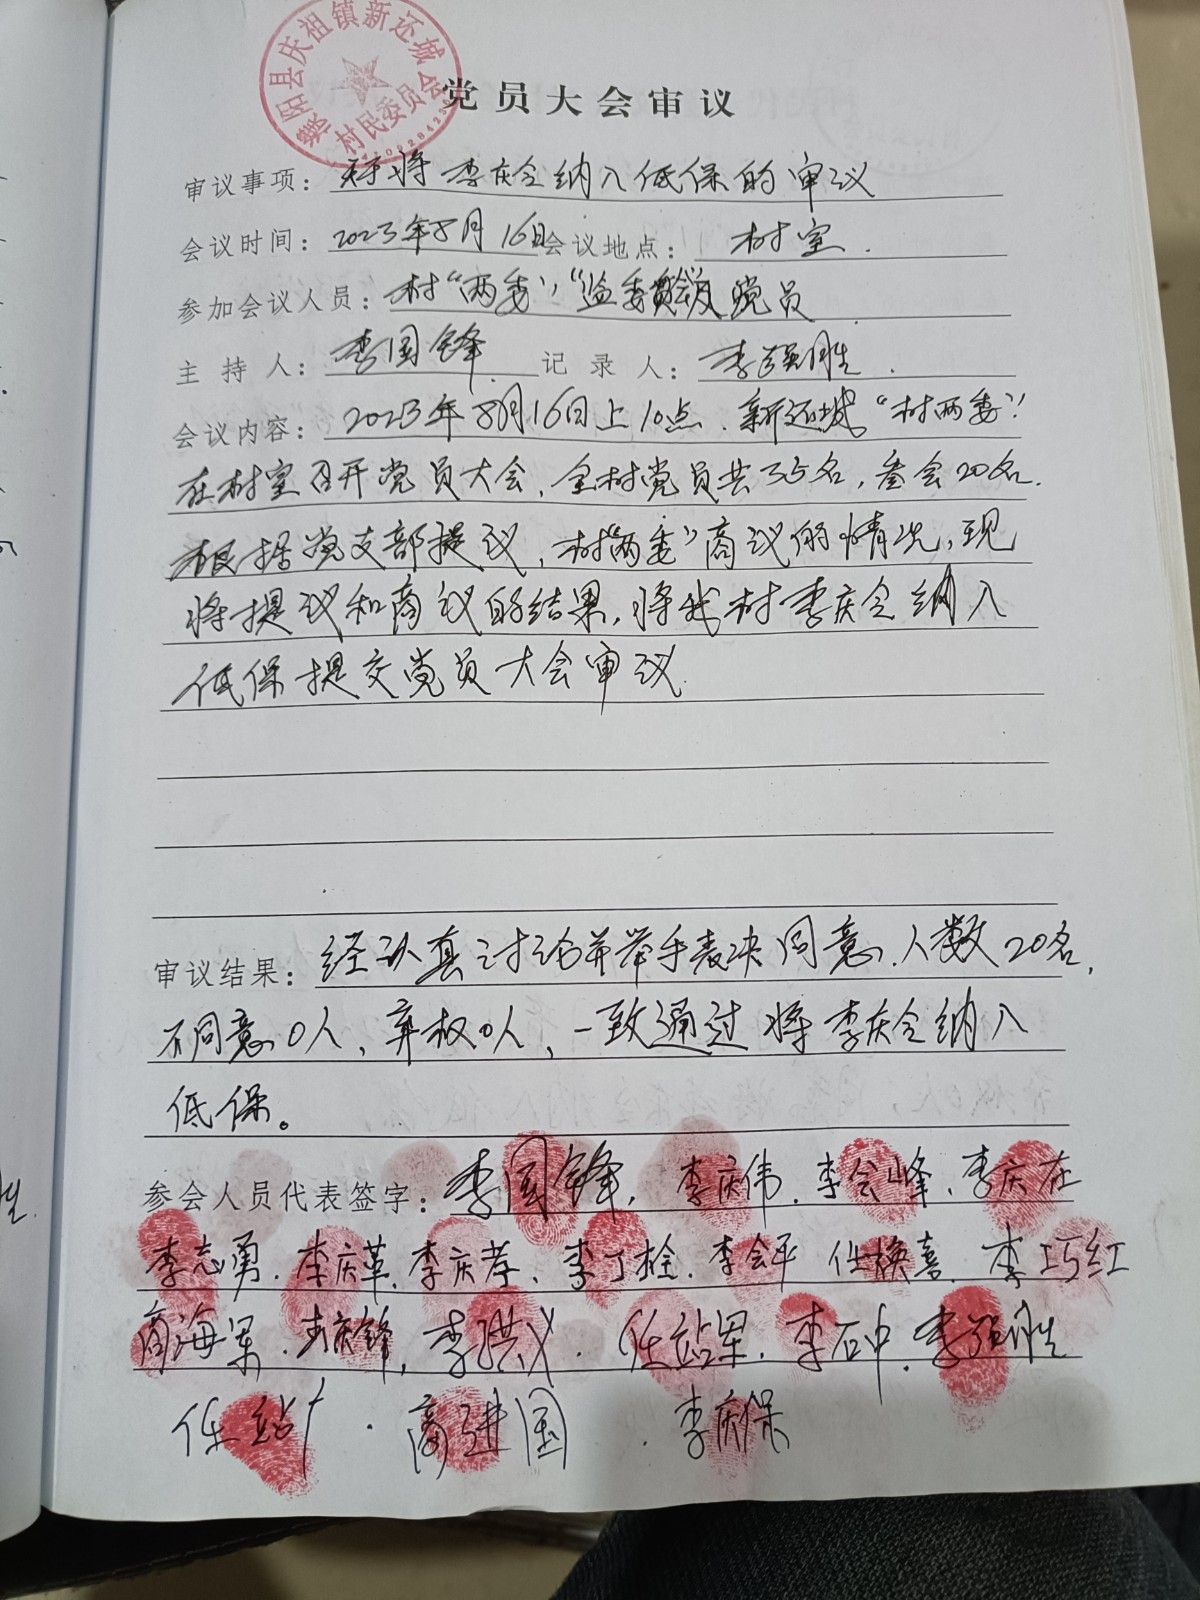 濮阳县庆祖镇新还城会
村民委员会
党员大会审议
审议事项：对将李庆令纳入低保的审议
会议时间：2023年8月16日会议地点：村室.
参加会议人员：村“两委”、“监委会”及党员
主持人：李国锋 记录人：李强胜.
会议内容：2023年8月16日上10点.新还城“村两委”
在村室召开党员大会,全村党员共35名,参会20名.
根据党支部提议,村“两委”商议的情况,现
将提议和商议的结果,将我村李庆令纳入
低保提交党员大会审议.
审议结果：经认真讨论并举手表决同意.人数20名,
不同意0人,弃权0人,一致通过将李庆令纳入
低保。
参会人员代表签字：李国锋.李庆伟.李会峰.李庆在
李志勇.李庆革.李庆孝.李丁栓.李会平 任换喜.李巧红
商海军.李庆锋.李洪义.任站军.李石中.李强胜
任站广.商进国.李庆保